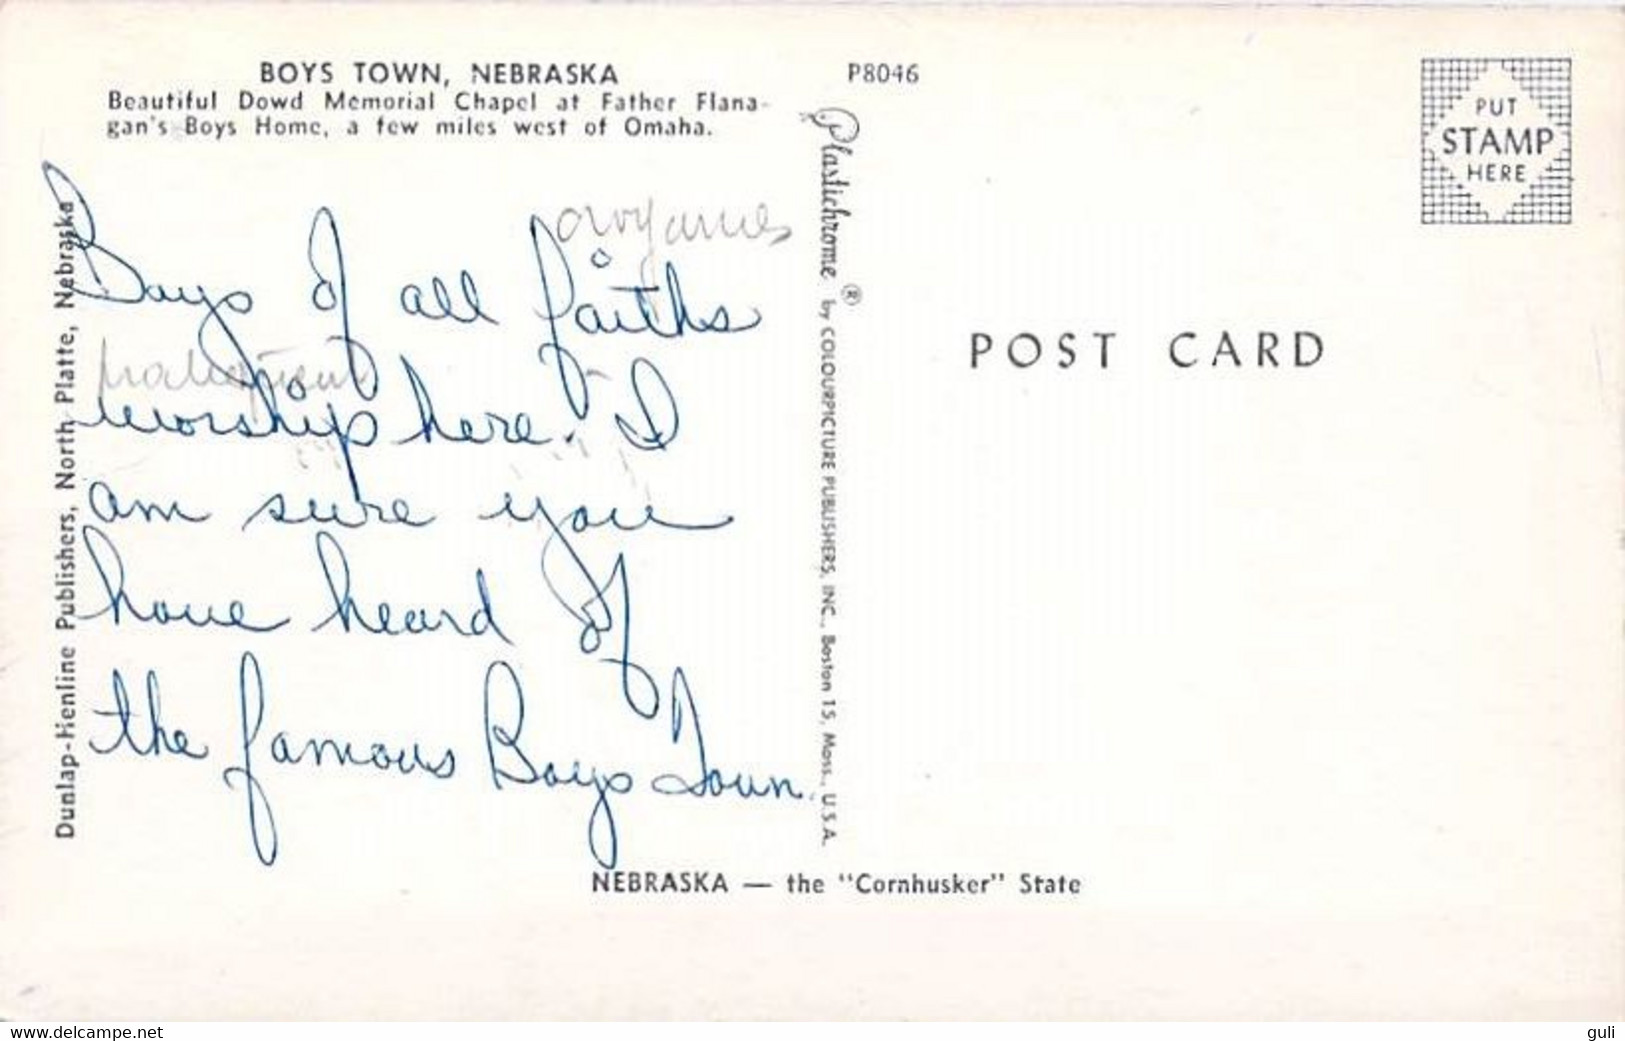 BOYS TOWN, NEBRASKA
Beautiful Dowd Memorial Chapel at Father Flana-
gan's Boys Home, a few miles west of Omaha.
P8046
PUT
STAMP
HERE
Dunlap-Henline Publishers, North Platte, Nebraska
croyances
Boys of all faiths
pratiquent
worship here. I
am sure you
have heard of
the famous Boys Town.
Plastichrome ® by COLOURPICTURE PUBLISHERS, INC., Boston 15, Mass., U.S.A.
POST CARD
NEBRASKA — the "Cornhusker" State
www.delcampe.net
guli